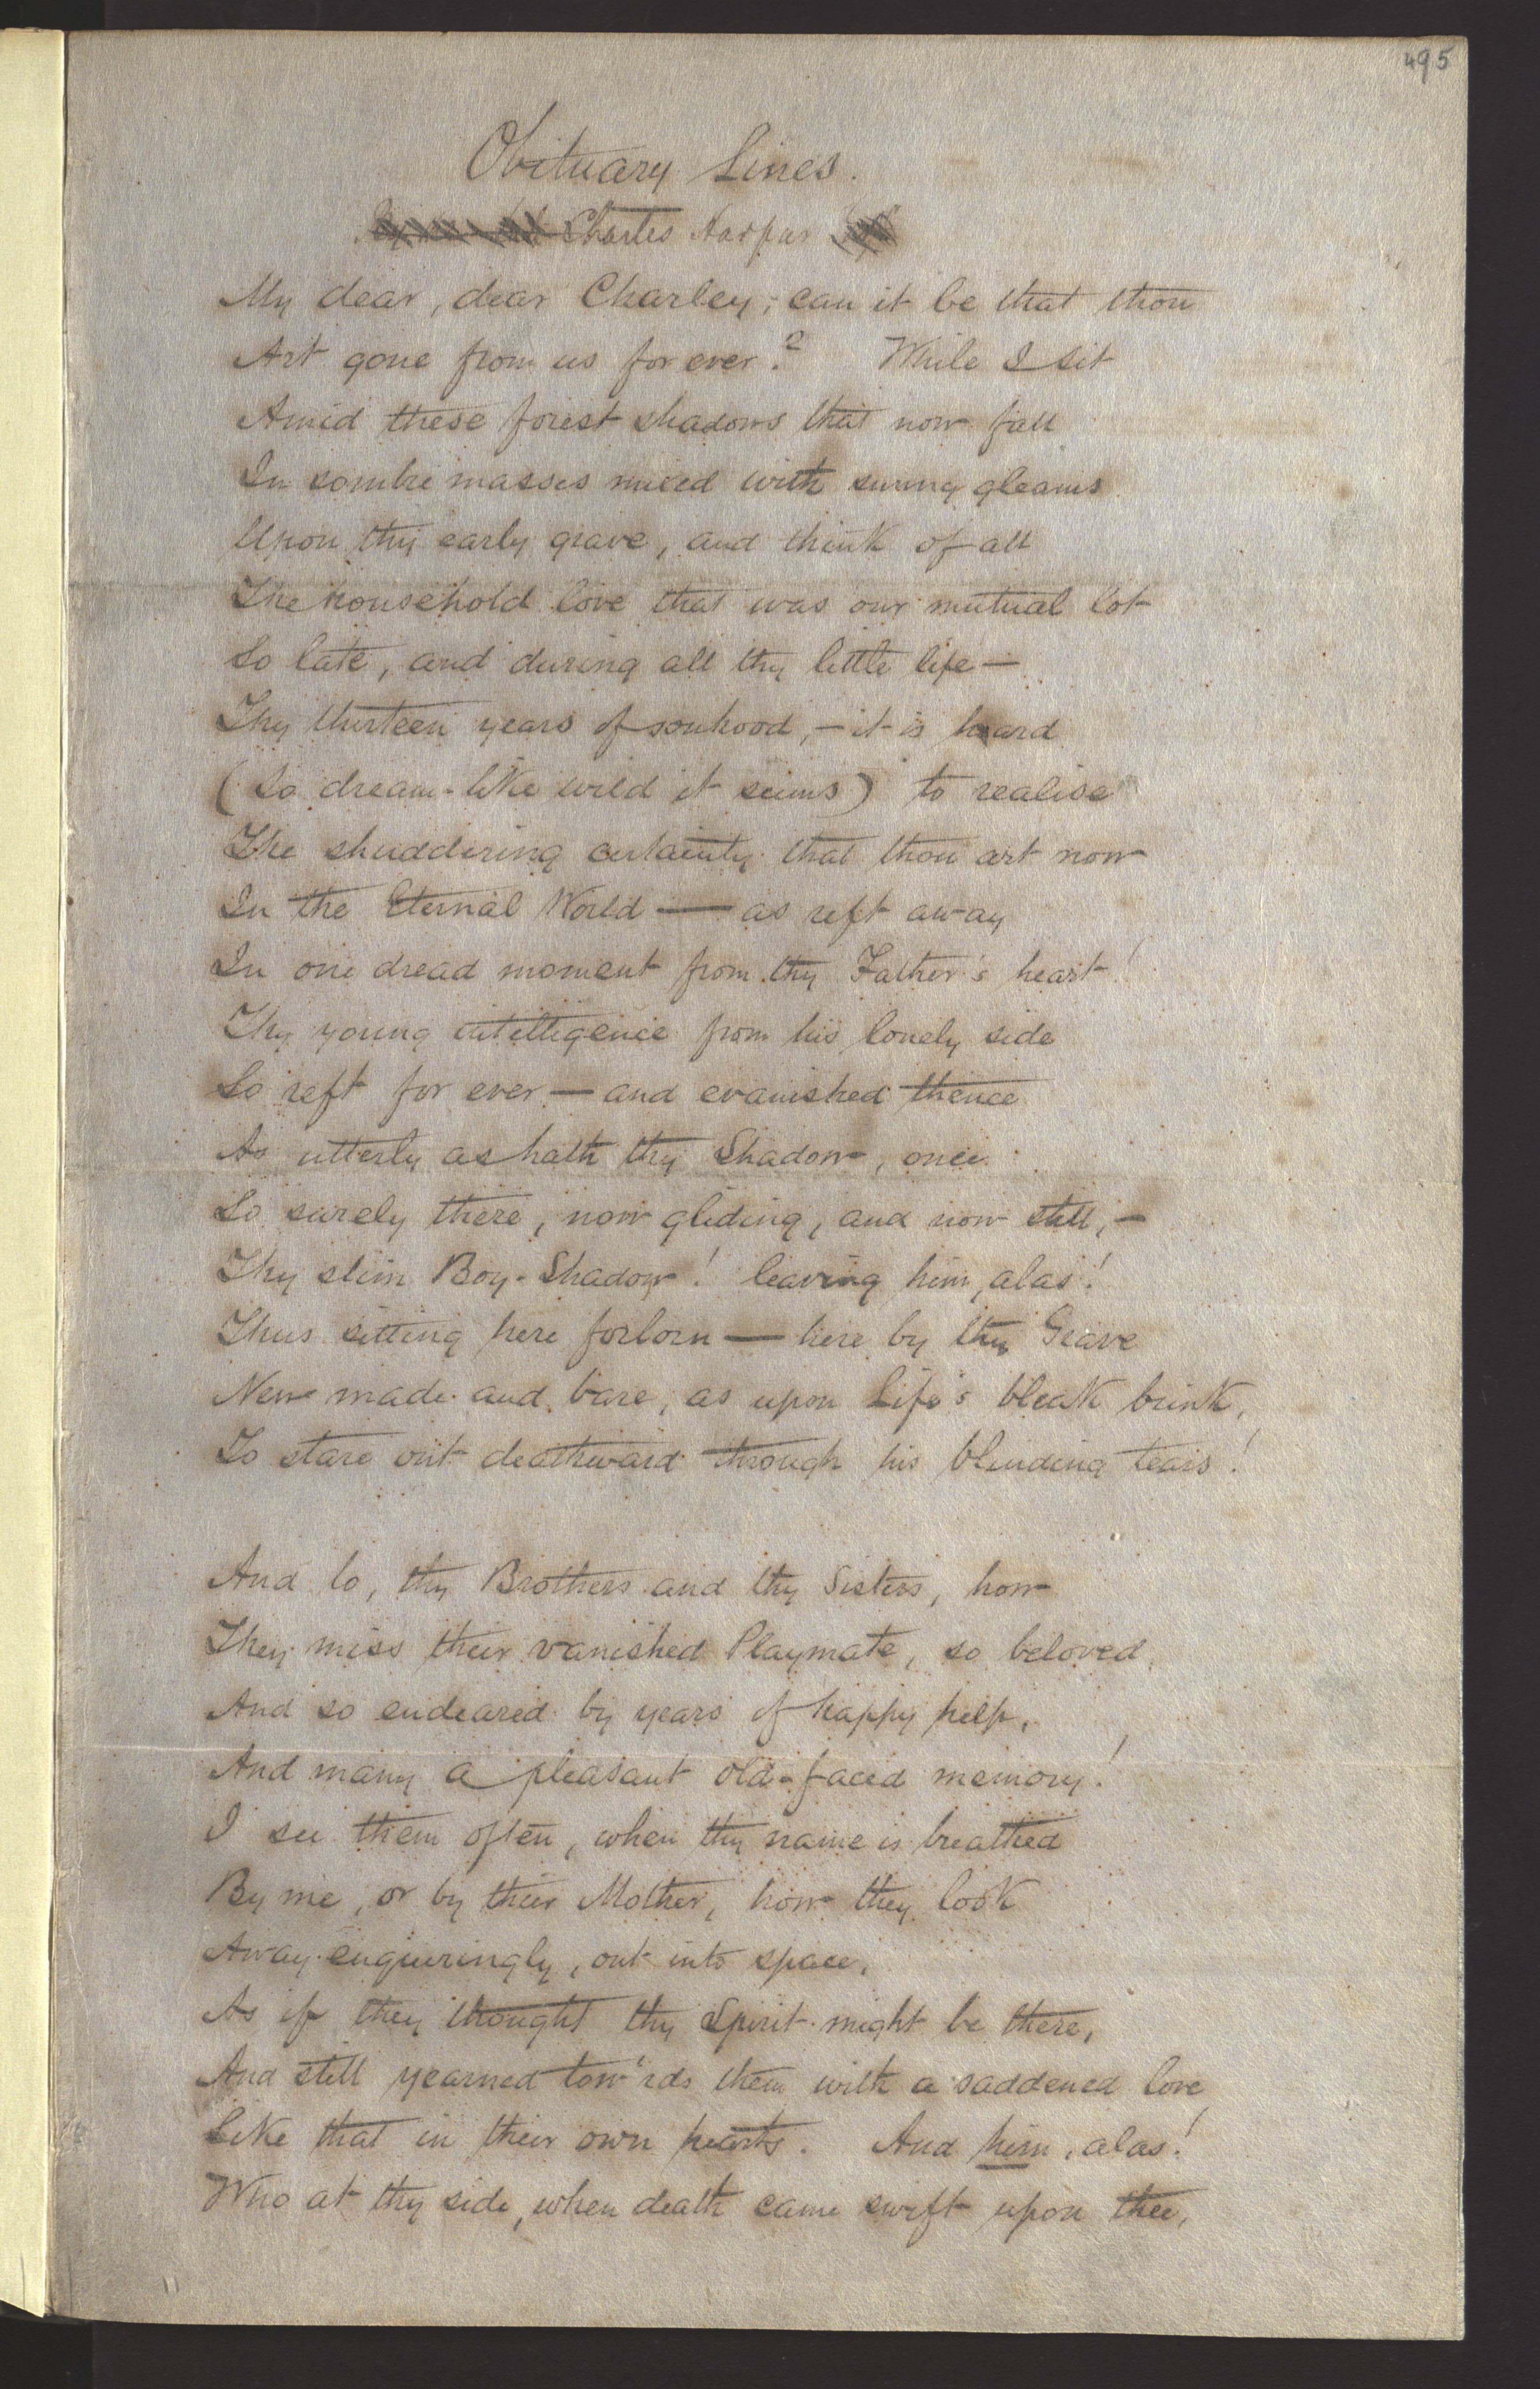 495
Obituary Lines.
Charles Harpur
My dear, dear Charley, can it be that thou
Art gone from us for ever? While I sit
Amid these forest shadows that now fall
In sombre masses mixed with sunny gleams
Upon thy early grave, and think of all
The household love that was our mutual lot
So late, and during all thy little life —
Thy thirteen years of sonhood, — it is hard
(So dream-like wild it seems) to realise
The shuddering certainty that thou art now
In the Eternal World — as reft away
In one dread moment from thy Father's heart!
Thy young intelligence from his lonely side
So reft for ever — and evanished thence
As utterly as hath thy Shadow, once
So surely there, now gliding, and now still, —
Thy slim Boy-Shadow! leaving him, alas!
Thus sitting here forlorn — here by thy Grave
New made and bare, as upon Life's bleak brink,
To stare out deathward through his blinding tears!
And lo, thy Brothers and thy Sisters, how
They miss their vanished Playmate, so beloved,
And so endeared by years of happy help,
And many a pleasant old-faced memory!
I see them often, when thy name is breathed
By me, or by their Mother, how they look
Away enquiringly, out into space,
As if they thought thy Spirit might be there,
And still yearned tow'rds them with a saddened love
Like that in their own hearts. And him, alas!
Who at thy side, when death came swift upon thee,